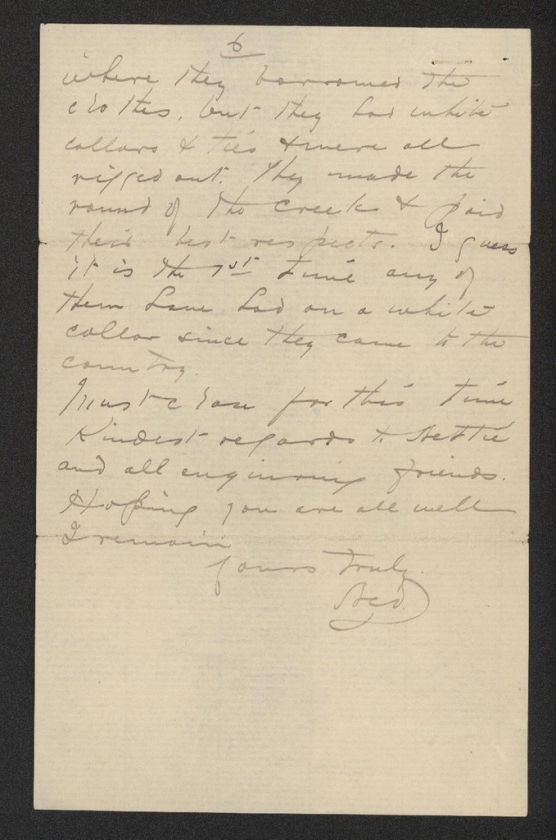 6
where they borrowed the
clothes, but they had white
collars & ties & were all
rigged out. They made the
round of the creek & paid
their best respects. I guess
it is the 1st time any of
them have had on a white
collar since they came to the
country.
Must close for this time
Kindest regards to Nettie
and all enquiring friends.
Hoping you are all well
I remain
yours truly